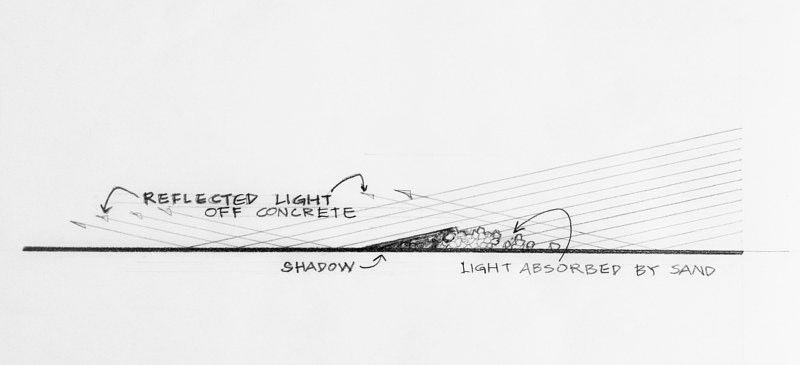 REFLECTED LIGHT
OFF CONCRETE
SHADOW
LIGHT ABSORBED BY SAND